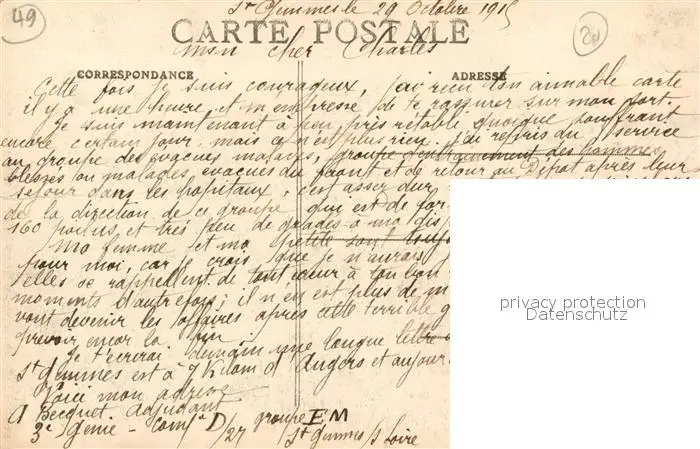 49
St Gemmes le 29 Octobre 1915
CARTE POSTALE
20
mon cher Charles
CORRESPONDANCE
ADRESSE
Cette fois je suis courageux, j'ai reçu ton aimable carte
il y a une heure, et m'empresse de te rassurer sur mon sort.
Je suis maintenant à peu près rétabli, quoique souffrant
encore certain jour, mais ce n'est plus rien. j'ai repris du service
au groupe des évacués malades, groupe d'entrainement des hommes
blessés ou malades évacués du front et de retour au Dépôt après leur
séjour dans les hopitaux, c'est assez dur
de la direction de ce groupe qui est de
160 poilus, et très peu de gradés à ma dis
Ma femme et ma petite sont
pour moi, car je crois que je n'aurais
elles se rappellent de tout cœur à ton bon
moments d'autrefois; il n'en est plus de m
vont devenir les affaires après cette terrible g
prévoir encor la fin
Je t'écrirai demain une longue lettre
St Gemmes est à 7 Kilom d'Angers et aujour
Voici mon adresse
A Becquet adjudant
3e Génie - Comp D/27 groupe E M
St Gemmes s/ Loire
privacy protection
Datenschutz